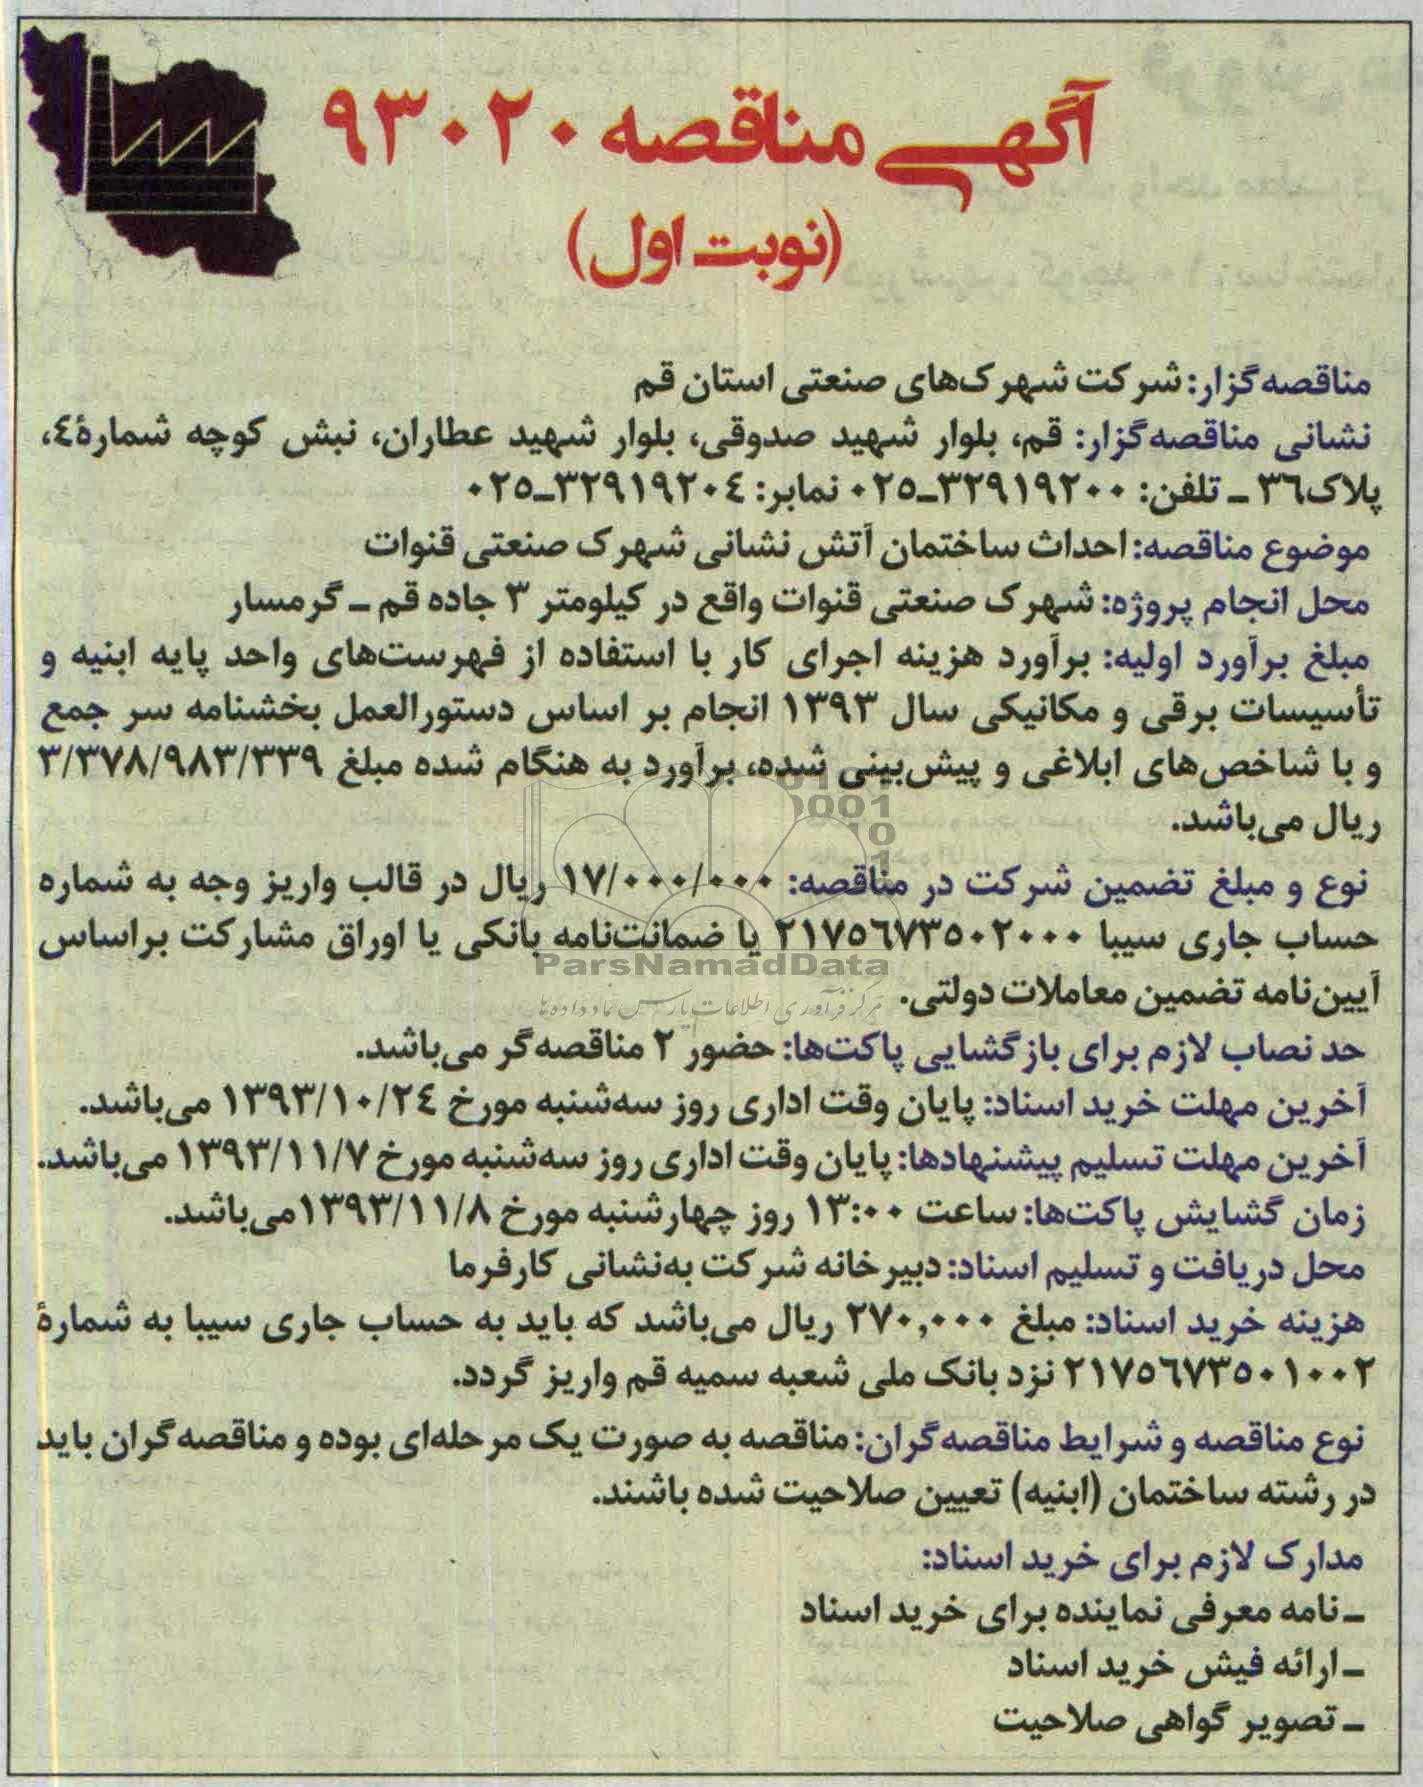 آگهی مناقصه ۹۳۰۲۰
(نوبت اول)
مناقصه‌گزار: شرکت شهرک‌های صنعتی استان قم
نشانی مناقصه‌گزار: قم، بلوار شهید صدوقی، بلوار شهید عطاران، نبش کوچه شمارهٔ۴،
پلاک۳۶ ـ تلفن: ۳۲۹۱۹۲۰۰ـ۰۲۵ نمابر: ۳۲۹۱۹۲۰۴ـ۰۲۵
موضوع مناقصه: احداث ساختمان آتش نشانی شهرک صنعتی قنوات
محل انجام پروژه: شهرک صنعتی قنوات واقع در کیلومتر ۳ جاده قم ـ گرمسار
مبلغ برآورد اولیه: برآورد هزینه اجرای کار با استفاده از فهرست‌های واحد پایه ابنیه و
تأسیسات برقی و مکانیکی سال ۱۳۹۳ انجام بر اساس دستورالعمل بخشنامه سر جمع
و با شاخص‌های ابلاغی و پیش‌بینی شده، برآورد به هنگام شده مبلغ ۳/۳۷۸/۹۸۳/۳۳۹
ریال می‌باشد.
نوع و مبلغ تضمین شرکت در مناقصه: ۱۷/۰۰۰/۰۰۰ ریال در قالب واریز وجه به شماره
حساب جاری سیبا ۲۱۷۵۶۷۳۵۰۲۰۰۰ یا ضمانت‌نامه بانکی یا اوراق مشارکت براساس
آیین‌نامه تضمین معاملات دولتی.
حد نصاب لازم برای بازگشایی پاکت‌ها: حضور ۲ مناقصه‌گر می‌باشد.
آخرین مهلت خرید اسناد: پایان وقت اداری روز سه‌شنبه مورخ ۱۳۹۳/۱۰/۲۴ می‌باشد.
آخرین مهلت تسلیم پیشنهادها: پایان وقت اداری روز سه‌شنبه مورخ ۱۳۹۳/۱۱/۷ می‌باشد.
زمان گشایش پاکت‌ها: ساعت ۱۳:۰۰ روز چهارشنبه مورخ ۱۳۹۳/۱۱/۸می‌باشد.
محل دریافت و تسلیم اسناد: دبیرخانه شرکت به‌نشانی کارفرما
هزینه خرید اسناد: مبلغ ۲۷۰,۰۰۰ ریال می‌باشد که باید به حساب جاری سیبا به شمارهٔ
۲۱۷۵۶۷۳۵۰۱۰۰۲ نزد بانک ملی شعبه سمیه قم واریز گردد.
نوع مناقصه و شرایط مناقصه‌گران: مناقصه به صورت یک مرحله‌ای بوده و مناقصه‌گران باید
در رشته ساختمان (ابنیه) تعیین صلاحیت شده باشند.
مدارک لازم برای خرید اسناد:
ـ نامه معرفی نماینده برای خرید اسناد
ـ ارائه فیش خرید اسناد
ـ تصویر گواهی صلاحیت
ParsNamadData
مرکز فرآوری اطلاعات پارس نماد داده‌ها